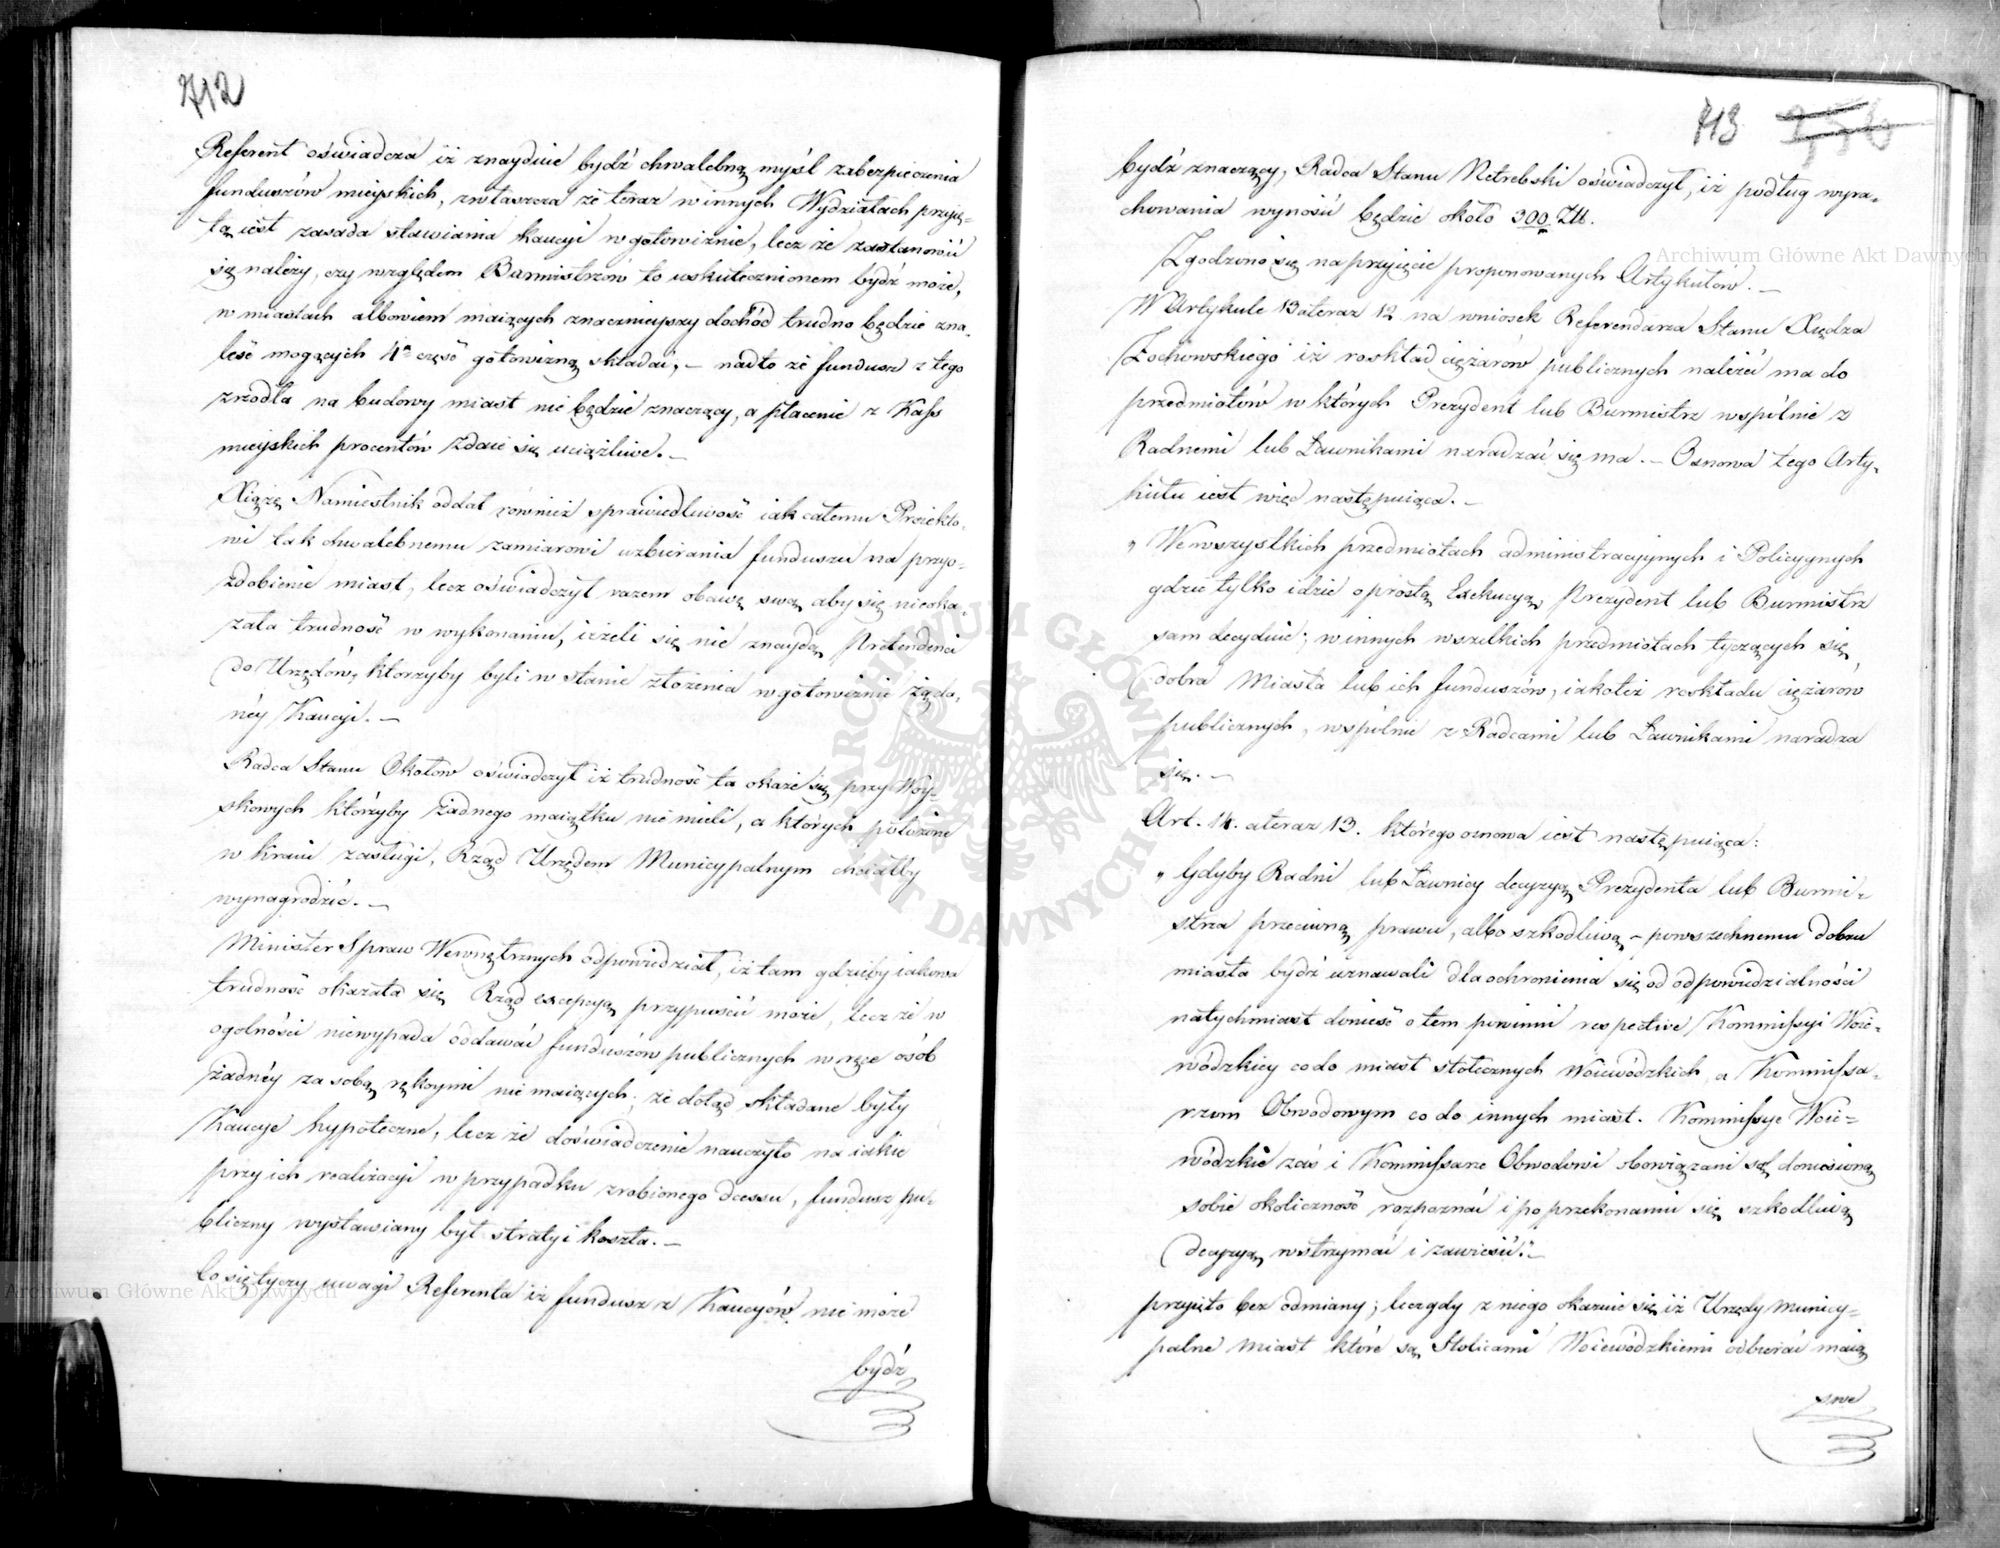 712
Referent oświadcza iż znayduie bydź chwalebną myśl zabezpieczenia
funduszów mieyskich, zwłaszcza że teraz w innych Wydziałach przyię-
tą iest zasada stawiania kaucyi w gotowiznie, lecz że zastanowić
się należy, czy względem Burmistrzów to uskutecznionem bydź może,
w miastach albowiem maiących znacznieyszy dochód trudno będzie zna-
leść mogących 4tą część gotowizną składać, – nadto że fundusz z tego
zrzodła na budowy miast nie będzie znaczący, a płacenie z Kass
mieyskich procentów zdaie się uciążliwe. –
Xiążę Namiestnik oddał również sprawiedliwość iak całemu Proiekto-
wi tak chwalebnemu zamiarowi uzbierania funduszu na przyo-
zdobienie miast, lecz oświadczył razem obawę swą aby się nieoka-
zała trudność w wykonaniu, ieżeli się nie znaydą Pretendenci
do Urzędów, którzyby byli w stanie złożenia w gotowiznie żąda-
néy Kaucyi. –
Radca Stanu Okołow oświadczył iż trudność ta okaże się przy Woy-
skowych którzyby żadnego maiątku nie mieli, a których położone
w kraiu zasługi, Rząd Urzędem Municypalnym chciałby
wynagrodzić. –
Minister Spraw Wewnętrznych odpowiedział, iż tam gdzieby iakowa
trudność okazała się Rząd excepcyą przypuścić może, lecz że w
ogolności niewypada oddawać funduszów publicznych w ręce osób
żadnéy za sobą rękoymi nie maiących; że dotąd składane były
Kaucye hypoteczne, lecz że doświadczenie nauczyło na iakie
przy ich realizacyi w przypadku zrobionego dcessu, fundusz pu-
bliczny wystawiany był straty i koszta. –
Co się tyczy uwagi Referenta iż fundusz z Kaucyów nie może
bydź
713
bydź znaczący, Radca Stanu Netrebski oświadczył, iż podług wyra-
chowania wynosić będzie około 300 Zł.
Zgodzono się na przyięcie proponowanych Artykułów. –
W Artykule 13 a teraz 12 na wniosek Referendarza Stanu Xiędza
Żochowskiego iż roskład ciężarów publicznych należeć ma do
przedmiotów w których Prezydent lub Burmistrz wspólnie z
Radnemi lub Ławnikami naradzać się ma. – Osnowa tego Arty-
kułu iest więc następuiąca. –
„ We wszystkich przedmiotach administracyjnych i Policyynych
gdzie tylko idzie o prostą Exekucyą, Prezydent lub Burmistrz
sam decyduie; w innych wszelkich przedmiotach tyczących się
dobra Miasta lub ich funduszów, iakoteż roskładu ciężarów
publicznych, wspólnie z Radcami lub Ławnikami naradza
się. –
Art. 14. a teraz 13. którego osnowa iest następuiąca:
„ Gdyby Radni lub Ławnicy decyzyą Prezydenta lub Burmi-
strza przeciwną prawu, albo szkodliwą – powszechnemu dobru
miasta bydź uznawali dla ochronienia się od odpowiedzialności
natychmiast donieść o tem powinni respective Kommissyi Woie-
wódzkiey co do miast stołecznych Woiewódzkich, a Kommissa-
rzom Obwodowym co do innych miast. Kommissye Woie-
wódzkie zaś i Kommissarze Obwodowi obowiązani są doniesioną
sobie okoliczność rozpoznać i po przekonaniu się szkodliwą
decyzyą wstrzymać i zawiesić." –
przyięto bez odmiany; lecz gdy z niego okazuie się iż Urzędy Municy-
palne miast które są Stolicami Woiewódzkiemi odbierać maią
swe
Archiwum Główne Akt Dawnych
Archiwum Główne Akt Dawnych
ARCHIWUM GŁÓWNE AKT DAWNYCH